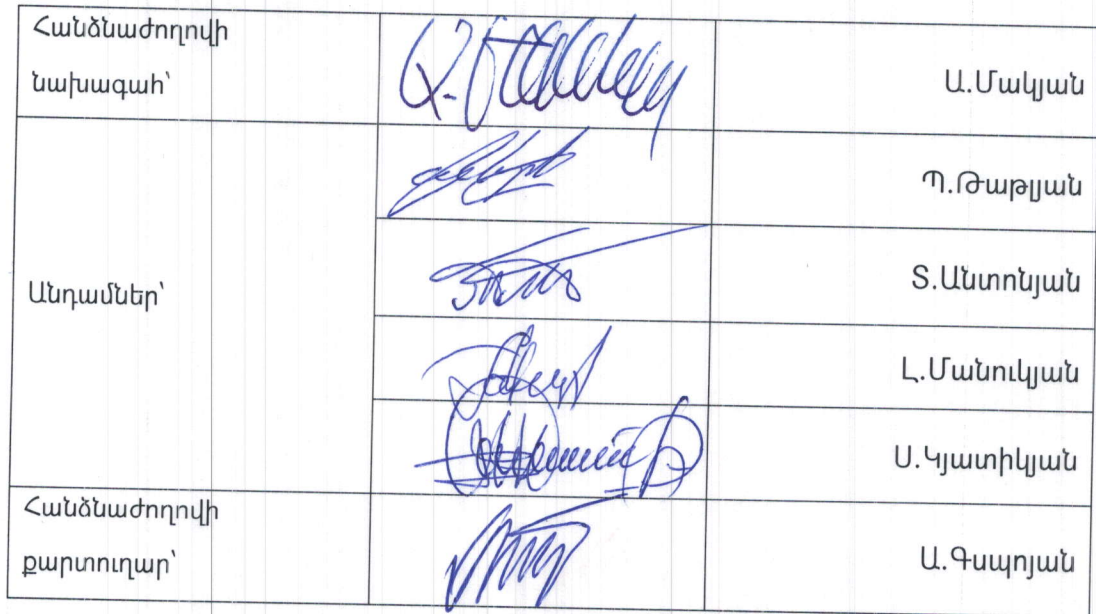 Հանձնաժողովի
նախագահ՝
Ա.Մակյան
Անդամներ՝
Պ.Թաթլյան
Տ.Անտոնյան
Լ.Մանուկյան
Ս.Կյատիկյան
Հանձնաժողովի
քարտուղար՝
Ա.Գսպոյան